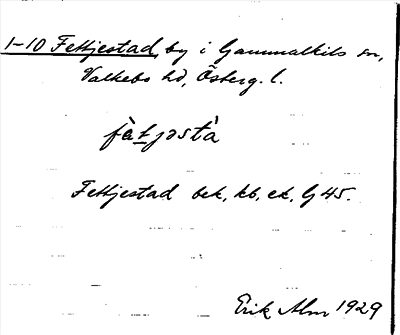 1-10 Fettjestad, by i Gammalkils sn,
Valkebo hd, Österg. l.
fàtjəstà
Fettjestad bek, kb, ek. G 45.
Erik Alm 1929